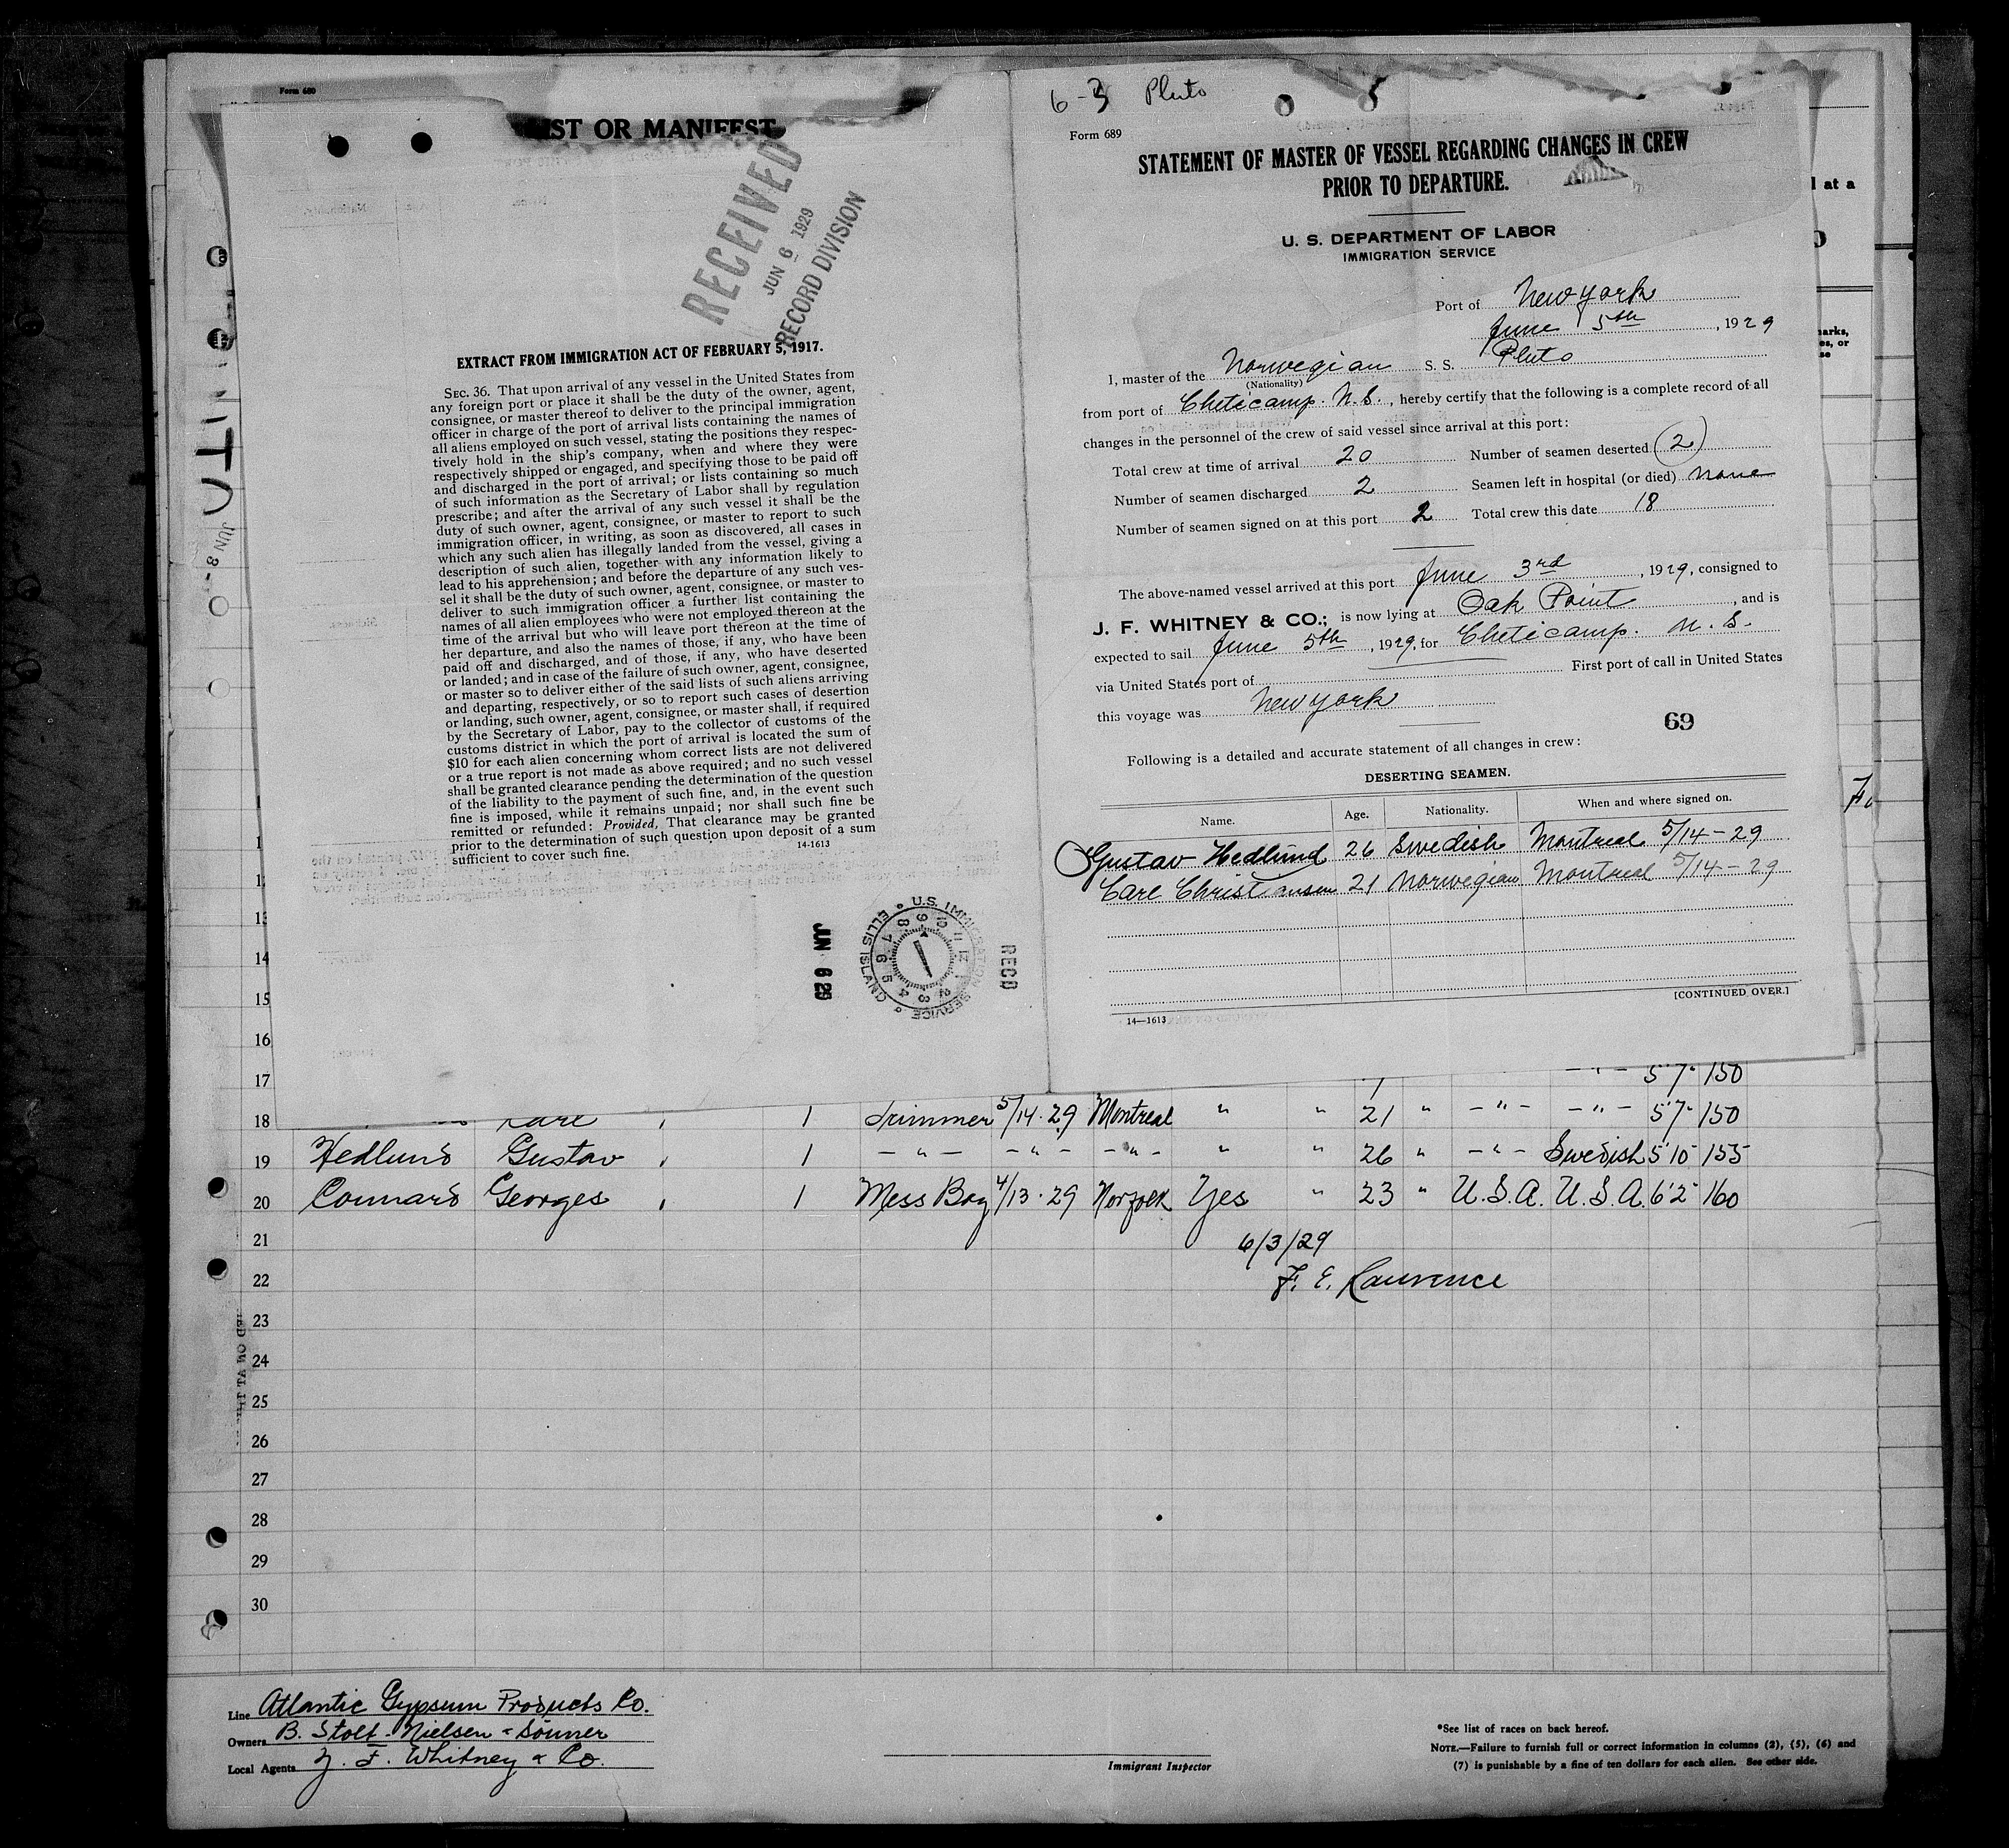 Form 680
IST OR MANIFEST
RECEIVED
JUN 6 1929
RECORD DIVISION
EXTRACT FROM IMMIGRATION ACT OF FEBRUARY 5, 1917.
SEC. 36. That upon arrival of any vessel in the United States from
any foreign port or place it shall be the duty of the owner, agent,
consignee, or master thereof to deliver to the principal immigration
officer in charge of the port of arrival lists containing the names of
all aliens employed on such vessel, stating the positions they respec-
tively hold in the ship's company, when and where they were
respectively shipped or engaged, and specifying those to be paid off
and discharged in the port of arrival; or lists containing so much
of such information as the Secretary of Labor shall by regulation
prescribe; and after the arrival of any such vessel it shall be the
duty of such owner, agent, consignee, or master to report to such
immigration officer, in writing, as soon as discovered, all cases in
which any such alien has illegally landed from the vessel, giving a
description of such alien, together with any information likely to
lead to his apprehension; and before the departure of any such ves-
sel it shall be the duty of such owner, agent, consignee, or master to
deliver to such immigration officer a further list containing the
names of all alien employees who were not employed thereon at the
time of the arrival but who will leave port thereon at the time of
her departure, and also the names of those, if any, who have been
paid off and discharged, and of those, if any, who have deserted
or landed; and in case of the failure of such owner, agent, consignee,
or master so to deliver either of the said lists of such aliens arriving
and departing, respectively, or so to report such cases of desertion
or landing, such owner, agent, consignee, or master shall, if required
by the Secretary of Labor, pay to the collector of customs of the
customs district in which the port of arrival is located the sum of
$10 for each alien concerning whom correct lists are not delivered
or a true report is not made as above required; and no such vessel
shall be granted clearance pending the determination of the question
of the liability to the payment of such fine, and, in the event such
fine is imposed, while it remains unpaid; nor shall such fine be
remitted or refunded: Provided, That clearance may be granted
prior to the determination of such question upon deposit of a sum
sufficient to cover such fine.
14-1613
JUN 6 29
U.S. IMMIGRATION SERVICE ELLIS ISLAND
RECD
JUN 8
6-3 Pluto
Form 689
STATEMENT OF MASTER OF VESSEL REGARDING CHANGES IN CREW
PRIOR TO DEPARTURE.
U. S. DEPARTMENT OF LABOR
IMMIGRATION SERVICE
Port of New York
June 5th, 1929
I, master of the Norwegian S. S. Pluto
(Nationality)
from port of Cheticamp. N.S., hereby certify that the following is a complete record of all
changes in the personnel of the crew of said vessel since arrival at this port:
Total crew at time of arrival 20 Number of seamen deserted (2)
Number of seamen discharged 2 Seamen left in hospital (or died) None
Number of seamen signed on at this port 2 Total crew this date 18
The above-named vessel arrived at this port June 3rd, 1929, consigned to
J. F. WHITNEY & CO.; is now lying at Oak Point, and is
expected to sail June 5th, 1929, for Cheticamp. N. S.
via United States port of First port of call in United States
this voyage was New York
69
Following is a detailed and accurate statement of all changes in crew:
DESERTING SEAMEN.
Name. Age. Nationality. When and where signed on.
Gustav Hedlund 26 Swedish Montreal 5/14-29
Carl Christiansen 21 Norwegian Montreal 5/14-29
[CONTINUED OVER.]
14—1613
l at a
13
14
15
16
17 5'7" 150
18 1 Trimmer 5/14-29 Montreal " " 21 " -"- -"- 5'7" 150
19 Hedlund Gustav 1 -"- -"- -"- " " 26 " -"- Swedish 5'10" 155
20 Connard Georges 1 Mess Boy 4/13-29 Norfolk Yes " 23 " U.S.A. U.S.A. 6'2" 160
21
6/3/29
22
F. E. Laurence
23
24
25
26
27
28
29
30
Line Atlantic Gypsum Products Co.
Owners B. Stolt-Nielsen & Sonner
Local Agents J. F. Whitney & Co.
Immigrant Inspector
*See list of races on back hereof.
NOTE.—Failure to furnish full or correct information in columns (2), (5), (6) and
(7) is punishable by a fine of ten dollars for each alien. See other side.